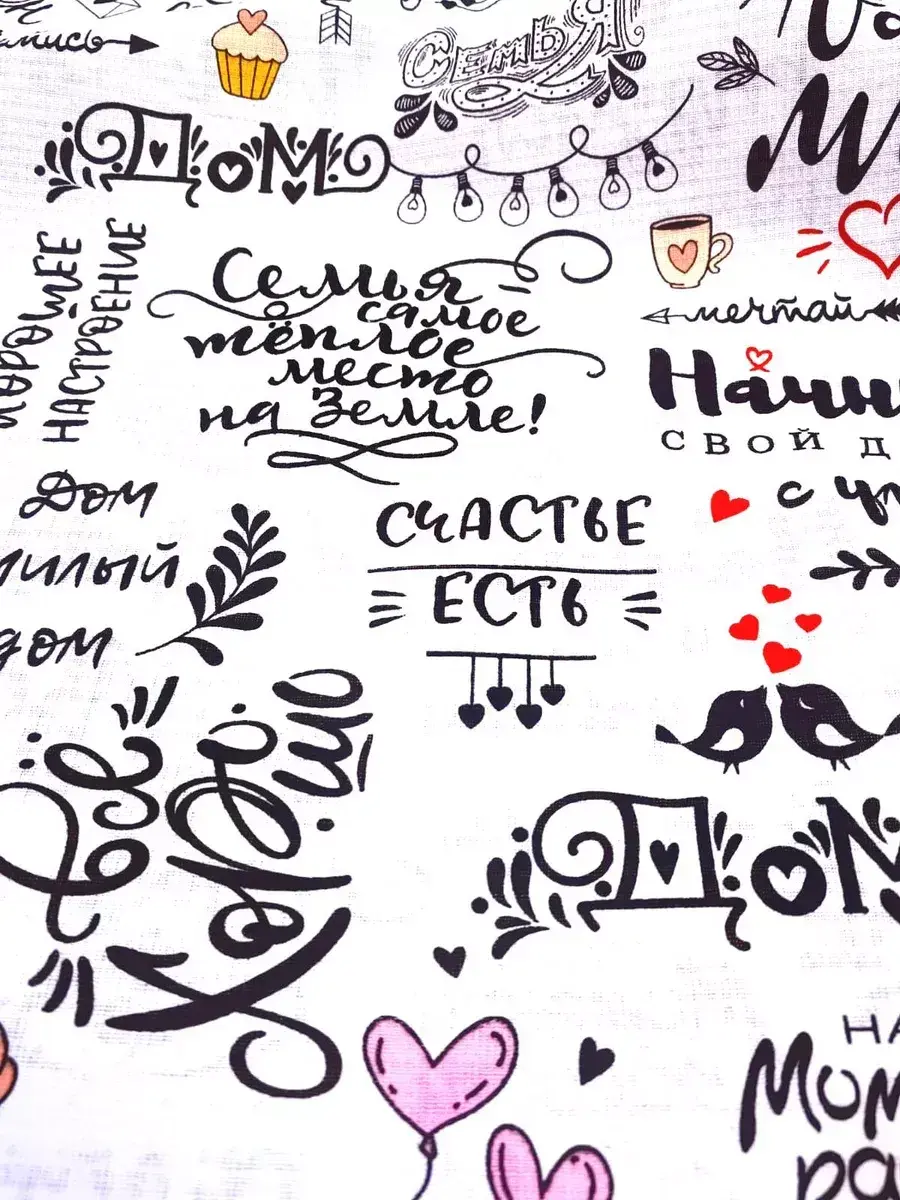 СЕМЬЯ
ДОМ
ХОРОШЕЕ
НАСТРОЕНИЕ
Семья –
самое
тёплое
место
на Земле!
мечтай
Начни
СВОЙ Д
с ул
Дом
милый
дом
СЧАСТЬЕ
ЕСТЬ
Всё
Хорошо
ДОМ
НА